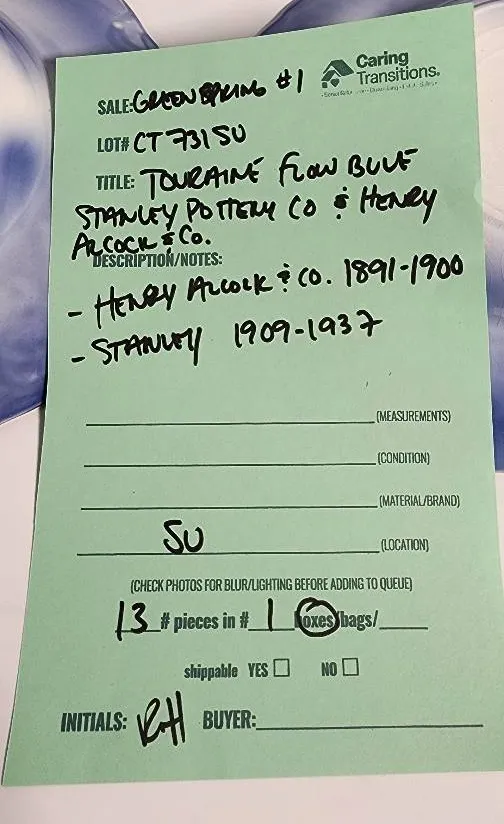 Caring
Transitions.
SALE: GREEN SPRING #1
LOT# CT731SU
TITLE: TOURAINE FLOW BLUE
STANLEY POTTERY CO & HENRY
ALCOCK & CO.
DESCRIPTION/NOTES:
- HENRY ALCOCK & CO. 1891-1900
- STANLEY 1909-1937
(MEASUREMENTS)
(CONDITION)
(MATERIAL/BRAND)
SU (LOCATION)
(CHECK PHOTOS FOR BLUR/LIGHTING BEFORE ADDING TO QUEUE)
13 # pieces in # 1 boxes/bags/
shippable YES NO
INITIALS: RH BUYER: